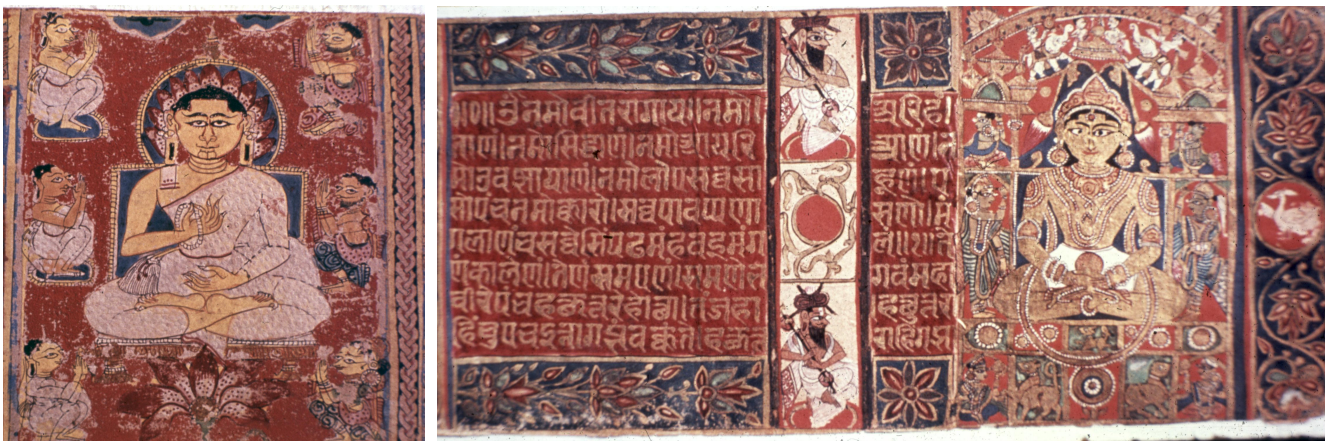 नमो वीतरागाय। नमो अरिहं
ताणं। नमो सिद्धाणं। नमो आयरि याणं। न
मो उवज्झायाणं। नमो लोए सव्वसा हूणं। ए
पंच नमोक्कारो। सव्वपावप्पणा सणो। मं
गलाणं च सव्वेसिं पढमं हवइ मंग लं॥ ते
णं कालेणं तेणं समएणं समणे भ गवं महा
वीरे पंचहत्थुत्तरे होत्था। तं जहा हत्थुत्तरा
हिं चुए चइत्ता गब्भं वक्कंते